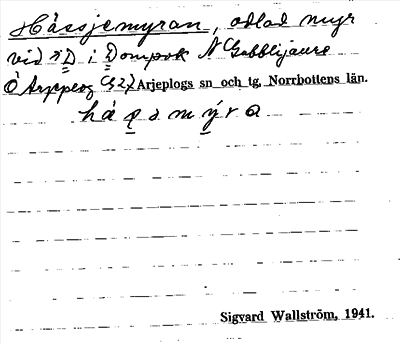 Hässjemyran, odlad myr
vid D i Dompok N Gabblijaure
O Arjeplog G27 Arjeplogs sn och tg, Norrbottens län.
Sigvard Wallström, 1941.